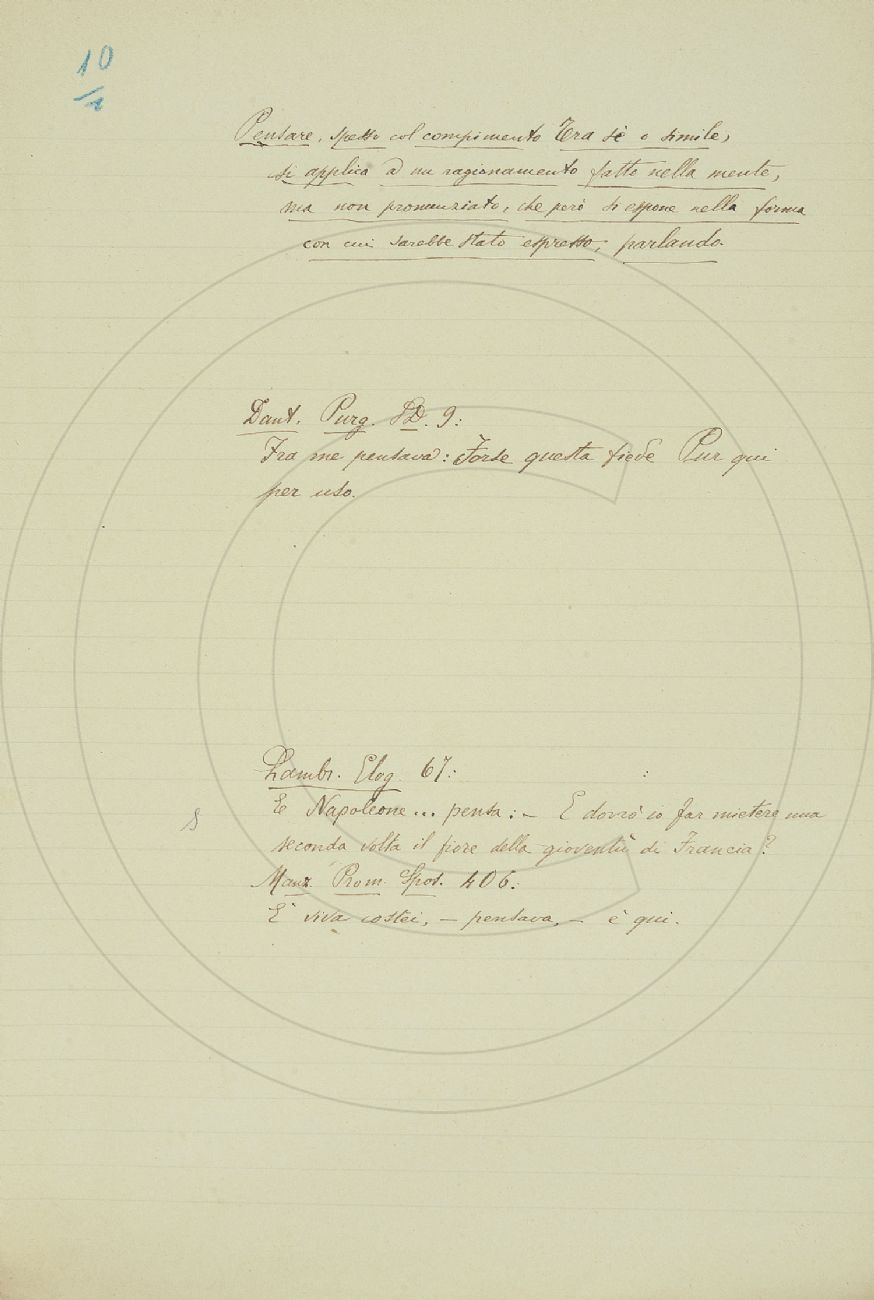 10
/2
Pensare, spesso col compimento Tra sè o simile,
si applica a un ragionamento fatto nella mente,
ma non pronunziato, che però si espone nella forma
con cui sarebbe stato espresso, parlando.
Dant. Purg. 9:
Fra me pensava: Forse questa fiede Pur qui
per uso.
Lambr. Elog. 67:
E Napoleone... pensa: – E dovrò io far mietere una
seconda volta il fiore della gioventù di Francia?
S
Manz. Prom. Spos. 406:
E' viva costei, – pensava, – è qui.